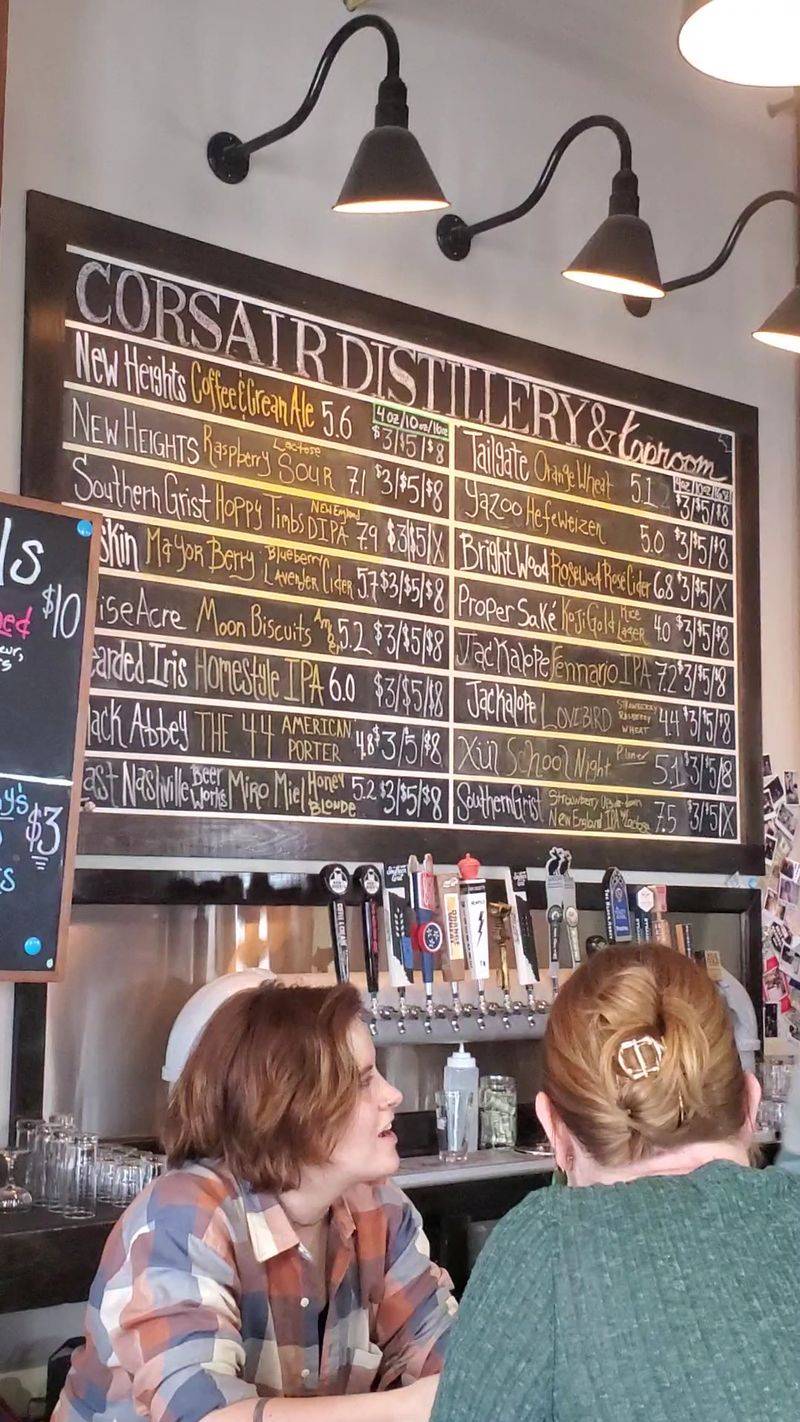 CORSAIR DISTILLERY & taproom
New Heights Coffee & Cream Ale 5.6 4oz/10oz/16oz $3/$5/$8
NEW HEIGHTS Raspberry Lactose SOUR 7.1 $3/$5/$8
Southern Grist Hoppy Timbs NEW England DIPA 7.9 $3/$5/X
skin Mayor Berry Blueberry Lavender Cider 5.7 $3/$5/$8
iseAcre Moon Biscuits 5.2 $3/$5/$8
earded Iris HOMEStyle IPA 6.0 $3/$5/$8
ack Abbey THE 44 AMERICAN PORTER 4.8 $3/$5/$8
ast Nashville Beer Works Miro Miel Honey BLONDE 5.2 $3/$5/$8
Tailgate Orange Wheat 5.1 4oz/10oz/16oz $3/$5/$8
Yazoo Hefeweizen 5.0 $3/$5/$8
BrightWood Rosewood Rosé Cider 6.8 $3/$5/X
Proper Saké Koji Gold Rice LAGER 4.0 $3/$5/$8
Jackalope Fennario IPA 7.2 $3/$5/$8
Jackalope LOVEBIRD STRAWBERRY RASPBERRY WHEAT 4.4 $3/$5/$8
Xül School Night Pilsner 5.1 $3/$5/$8
Southern Grist Strawberry New England IPA w/Lactose 7.5 $3/$5/X
ls
$10
ed
eur,
y's
$3
ts